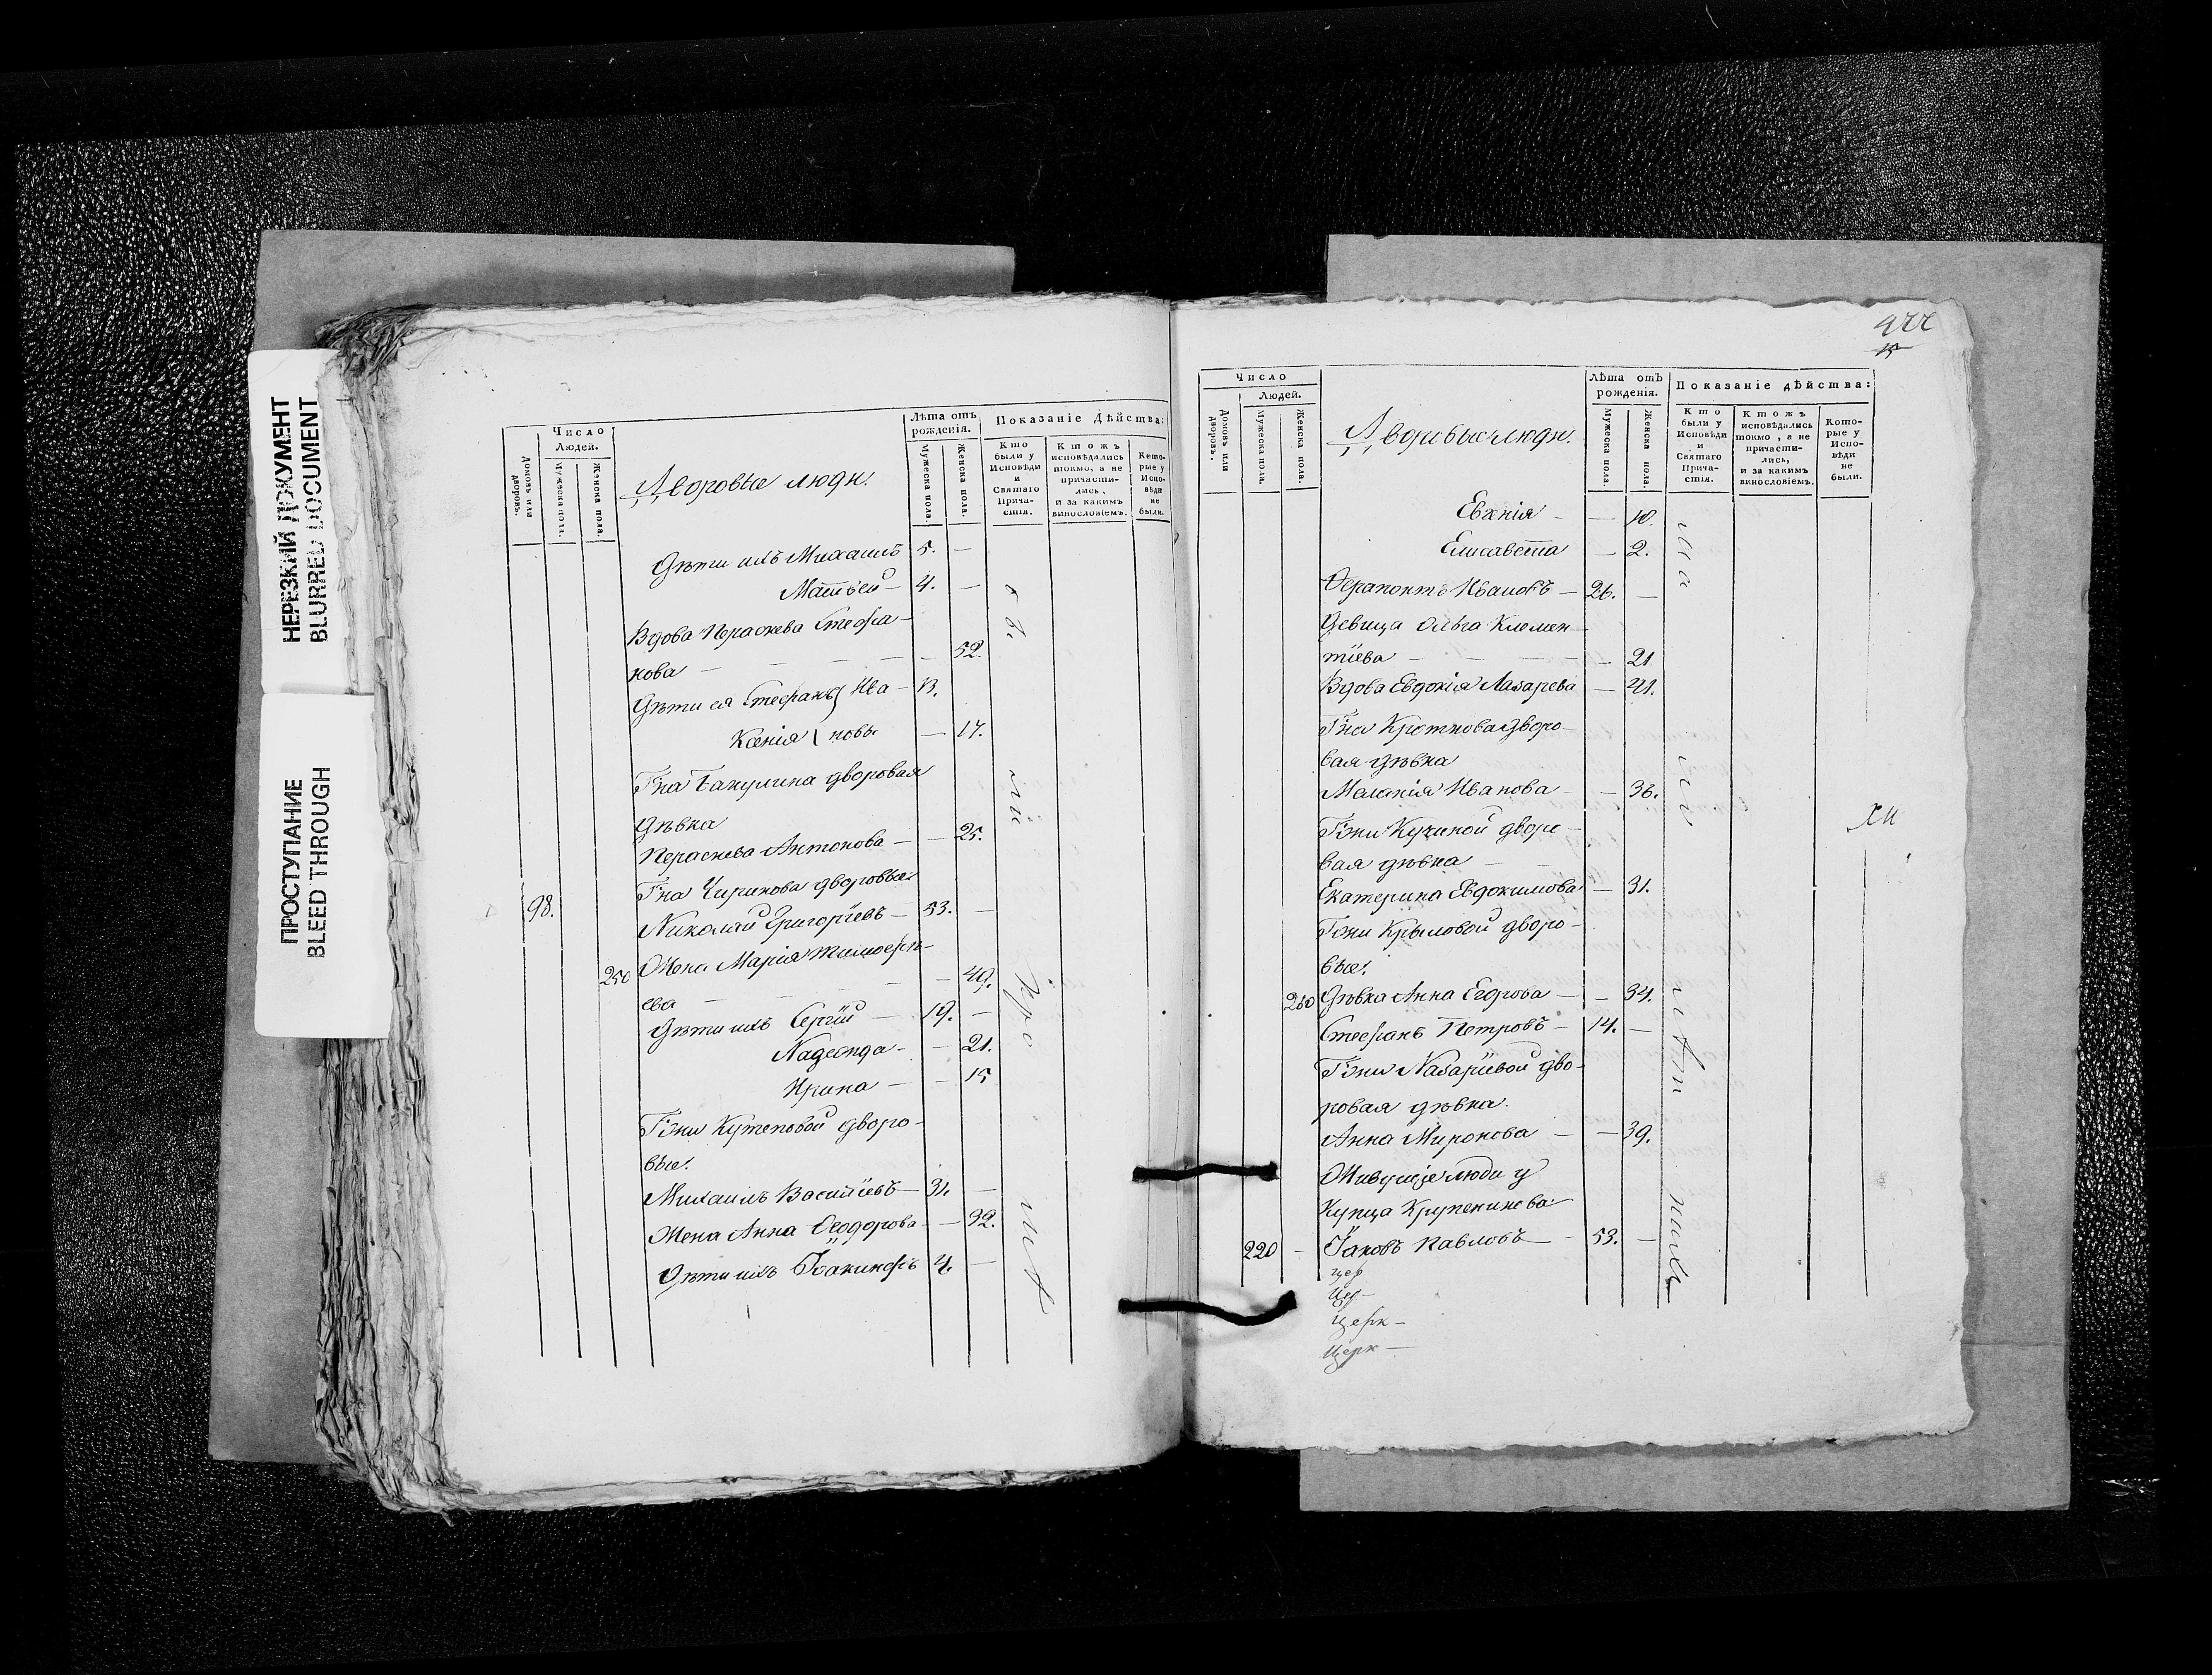 НЕРЕЗКИЙ ДОКУМЕНТ
BLURRED DOCUMENT
ПРОСТУПАНИЕ
BLEED THROUGH
Число
Людей.
Домовъ или дворовъ.
Мужеска пола.
Женска пола.
Дворовые люди.
Лѣта отъ рожденія.
Мужеска пола.
Женска пола.
Показаніе Дѣйства:
Кто были у Исповѣди и Святаго Прича-стія.
Ктожъ исповѣдались токмо, а не причасти-лись, и за какимъ винословіемъ.
Кото-рые у Испо-вѣди не были.
Дѣти ихъ Михаилъ 5. —
Матѳей — 4. —
Вдова Параскева Стефа-
нова — — — — — 52.
Дѣти ея Стефанъ Ива- 13.
Ксенія новы — 17.
Гна Бакулина дворовая
дѣвка
Параскева Антонова — — 25.
Гна Чирикова дворовые
98. Николай Григорїевъ — 53. —
250 Жена Марія Тимоѳѣ-
ева — — — — — 49.
Дѣти ихъ Сергїй — 19. —
Надежда — — 21.
Ирина — — 15
Гжи Кутеповой дворо-
вые.
Михаилъ Василїевъ — 31. —
Жена Анна Ѳеодорова — — 32.
Дѣти ихъ Іоакинфъ 4. —
422
15
Число
Людей.
Домовъ или дворовъ.
Мужеска пола.
Женска пола.
Дворовые люди.
Лѣта отъ рожденія.
Мужеска пола.
Женска пола.
Показаніе дѣйства:
Кто были у Исповѣди и Святаго Прича-стія.
Ктожъ исповѣдались токмо, а не причасти-лись, и за какимъ винословіемъ.
Кото-рые у Испо-вѣди не были.
Евгенія — — 10.
Елисавета — 2.
Ѳерапонтъ Ивановъ — 26. —
Девица Ольга Клемен-
тїева — — — — — 21
Вдова Евдокія Лазарева — 41.
Гна Кроткова дворо-
вая дѣвка
Меланія Иванова — — 36.
Гжи Кучиной дворо-
вая дѣвка —
Екатерина Евдокимова — 31.
Гжи Крыловой дворо-
вые.
260 Дѣвка Анна Егорова — — 34.
Стефанъ Петровъ — 14. —
Гжи Назарїевой дво-
ровая дѣвка.
Анна Миронова — — 39.
Живущіе люди у
Купца Крупеникова
220 — Іаковъ Павловъ — 53. —
цер
Цер —
церк —
Церк —